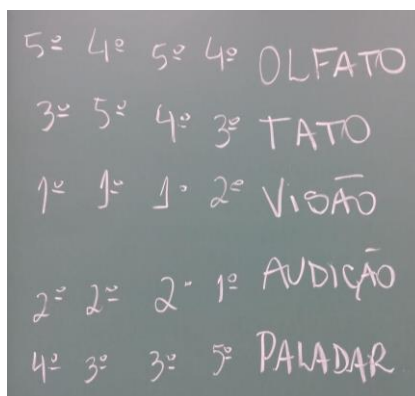 5º 4º 5º 4º OLFATO
3º 5º 4º 3º TATO
1º 1º 1º 2º VISÃO
2º 2º 2º 1º AUDIÇÃO
4º 3º 3º 5º PALADAR